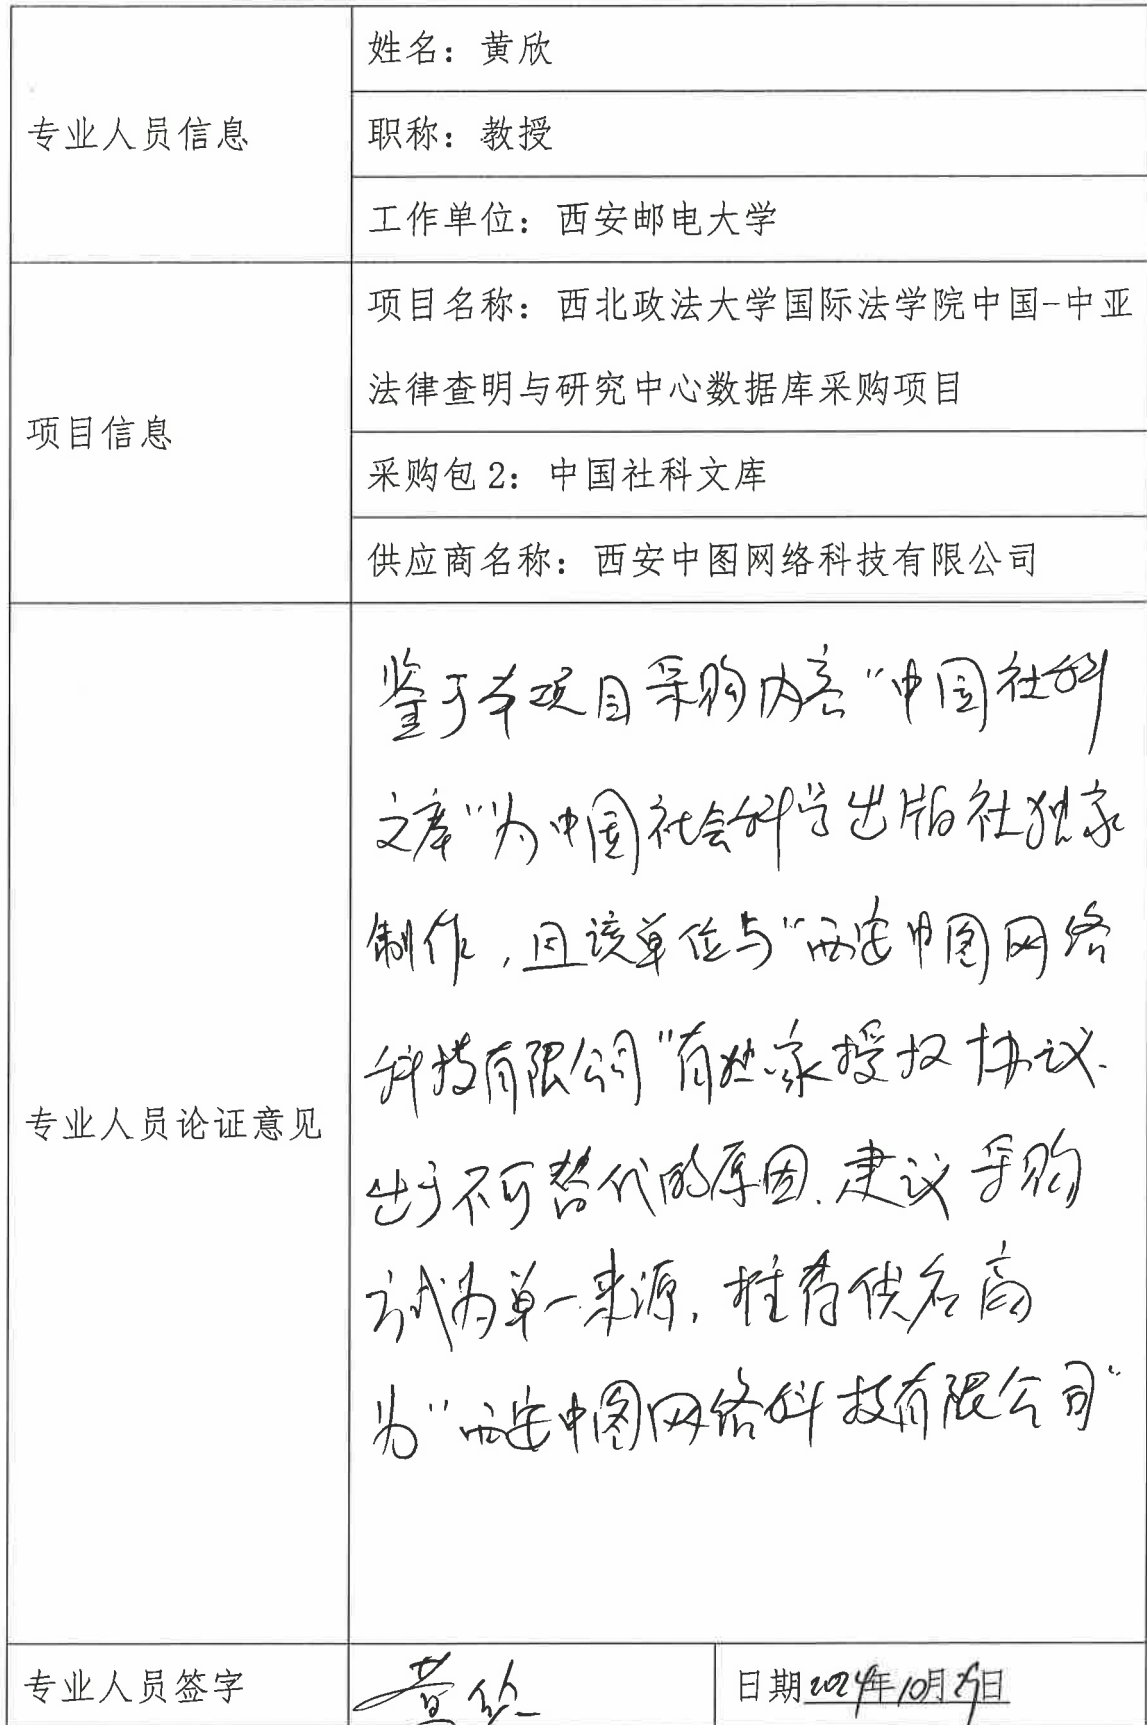 专业人员信息
姓名：黄欣
职称：教授
工作单位：西安邮电大学
项目信息
项目名称：西北政法大学国际法学院中国-中亚
法律查明与研究中心数据库采购项目
采购包2：中国社科文库
供应商名称：西安中图网络科技有限公司
专业人员论证意见
鉴于本项目采购内容“中国社科
文库”为中国社会科学出版社独家
制作，且该单位与“西安中图网络
科技有限公司”有独家授权协议.
出于不可替代的原因.建议采购
方式为单一来源，推荐供应商
为“西安中图网络科技有限公司”
专业人员签字
黄欣
日期2024年10月 日